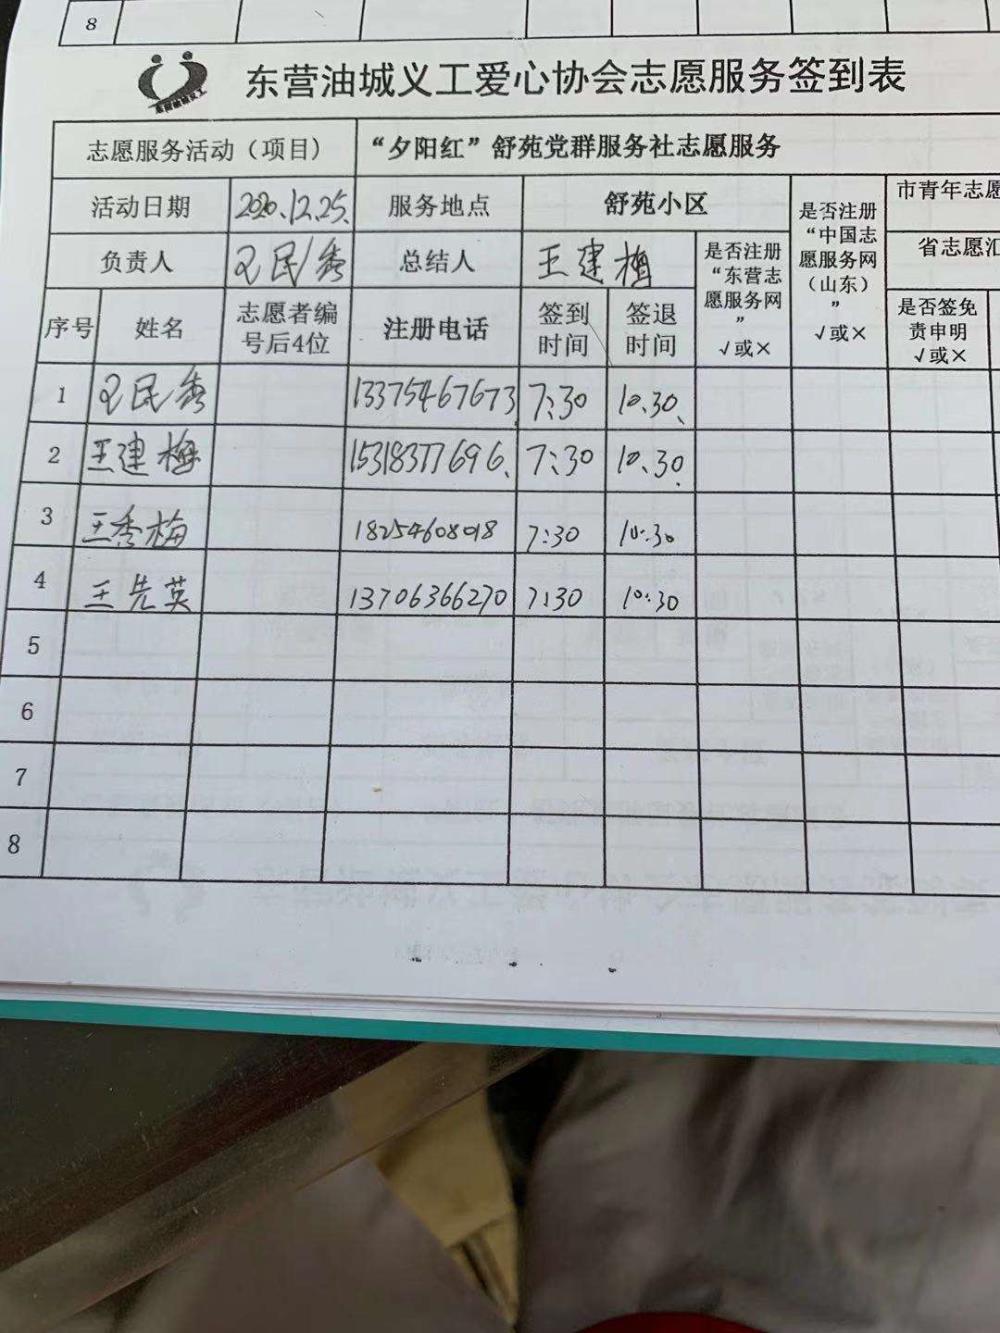 8
东营油城义工爱心协会志愿服务签到表
东营油城义工
志愿服务活动（项目） “夕阳红”舒苑党群服务社志愿服务
活动日期 2020.12.25. 服务地点 舒苑小区 是否注册“中国志愿服务网（山东）” √或× 市青年志愿
负责人 民秀 总结人 王建梅 是否注册“东营志愿服务网” √或× 省志愿汇
序号 姓名 志愿者编号后4位 注册电话 签到时间 签退时间 是否签免责申明 √或×
1 民秀 13375467673 7:30 10.30、
2 王建梅 15318377696、 7:30 10.30.
3 王秀梅 18254608018 7:30 10:30
4 王先英 13706366270 7:30 10:30
5
6
7
8